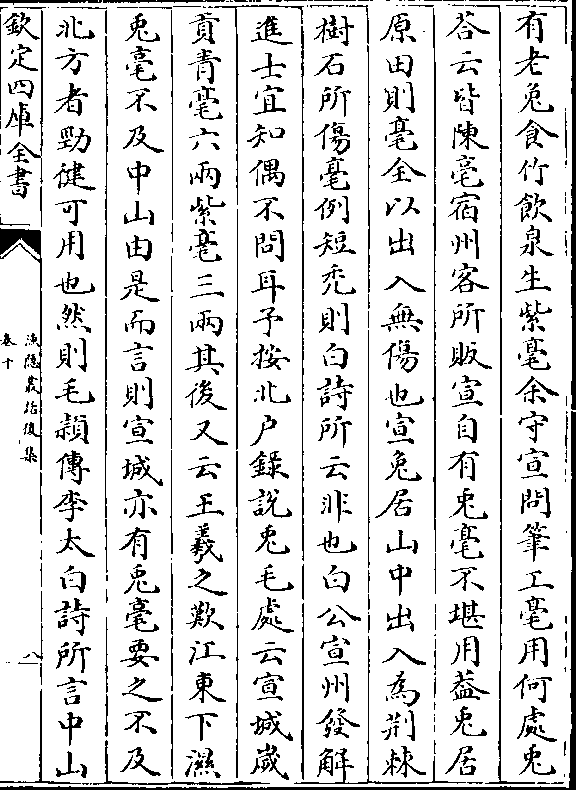 有老兔食竹飲泉生紫毫余守宣問筆工毫用何處兔
荅云皆陳亳宿州客所販宣自有兎毫不堪用葢兎居
原田則毫全以出入無傷也宣兔居山中出入為荆棘
樹石所傷毫例短秃則白詩所云非也白公宣州發解
進士宜知偶不問耳予按北户録說兎毛處云宣城嵗
貢青毫六兩紫毫三兩其後又云王羲之歎江東下濕
兎毫不及中山由是而言則宣城亦有兎毫要之不及
北方者勁健可用也然則毛頴傳李太白詩所言中山
欽定四庫全書
漁隠叢話後集
卷十
八